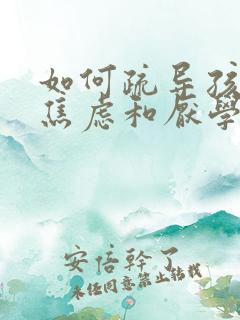 如何疏导孩
焦虑和厌學
安倍幹了
未经同意禁止转载